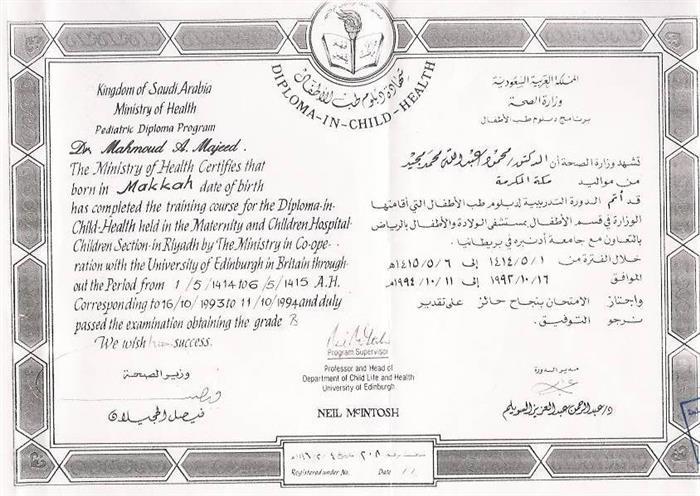 شهادة دبلوم طب الأطفال
DIPLOMA-IN-CHILD-HEALTH
Kingdom of Saudi Arabia
Ministry of Health
Pediatric Diploma Program
Dr. Mahmoud A. Majeed.
The Ministry of Health Certifies that
born in Makkah date of birth
has completed the training course for the Diploma-in-
Child-Health held in the Maternity and Children Hospital-
Children Section-in Riyadh by The Ministry in Co-ope-
ration with the University of Edinburgh in Britain through-
out the Period from 1/5/1414 to 6/5/1415 A.H.
Corresponding to 16/10/1993 to 11/10/1994 and duly
passed the examination obtaining the grade B
We wish success.
المملكة العربية السعودية
وزارة الصحة
برنامج دبلوم طب الأطفال
تشهد وزارة الصحة أن الدكتور/ محمود عبدالله محمد مجيد
من مواليد مكة المكرمة
قد أتم الدورة التدريبية لدبلوم طب الأطفال التي أقامتها
الوزارة في قسم الأطفال بمستشفى الولادة والأطفال بالرياض
بالتعاون مع جامعة أدنبره في بريطانيا.
خلال الفترة من ١/٥/١٤١٤ إلى ٦/٥/١٤١٥هـ
الموافق ١٦/١٠/١٩٩٣ إلى ١١/١٠/١٩٩٤م
واجتاز الامتحان بنجاح حائز على تقدير
نرجو التوفيق.
وزير الصحة
فيصل الحجيلان
Program Supervisor
Professor and Head of
Department of Child Life and Health
University of Edinburgh
NEIL McINTOSH
مدير الدورة
د/عبدالرحمن عبدالعزيز السويلم
٢٠٨
Registered under No. Date / /